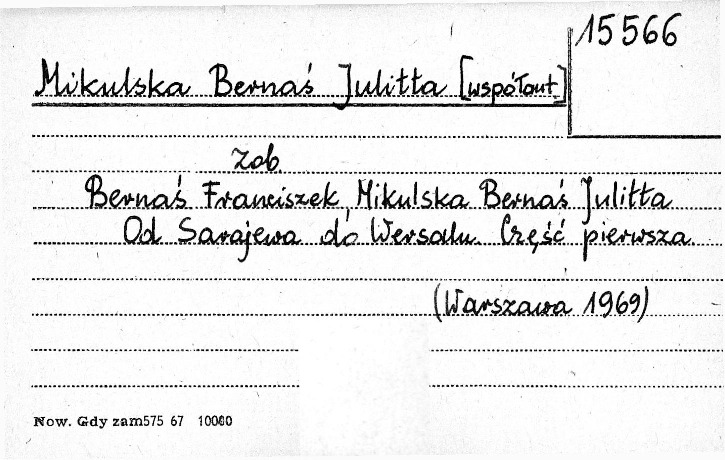 15566
Mikulska Bernaś Julitta [współaut.]
Zob.
Bernaś Franciszek, Mikulska Bernaś Julitta
Od Sarajewa do Wersalu Część pierwsza
(Warszawa 1969)
Now. Gdy zam575 67 10000